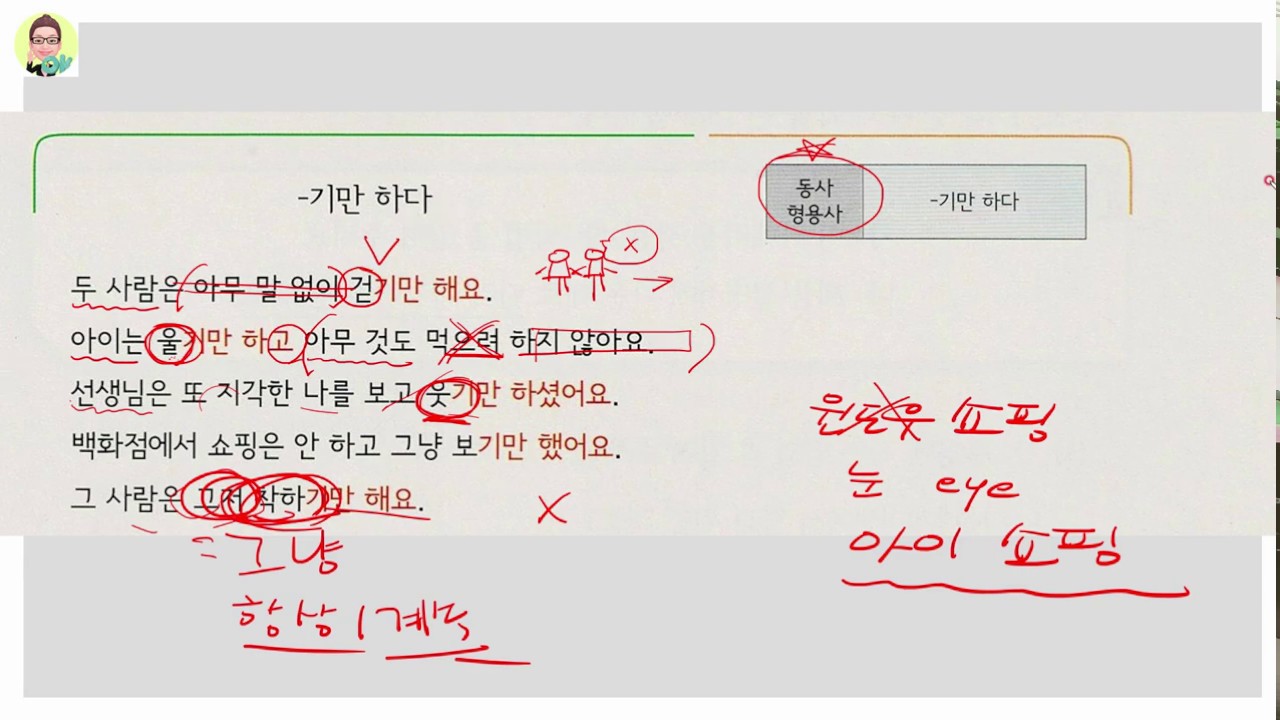 -기만 하다
동사
형용사
-기만 하다
두 사람은 아무 말 없이 걷기만 해요.
아이는 울기만 하고 아무 것도 먹으려 하지 않아요.
선생님은 또 지각한 나를 보고 웃기만 하셨어요.
백화점에서 쇼핑은 안 하고 그냥 보기만 했어요.
그 사람은 그저 착하기만 해요.
= 그냥
항상 / 계속
윈도우 쇼핑
눈 eye
아이 쇼핑